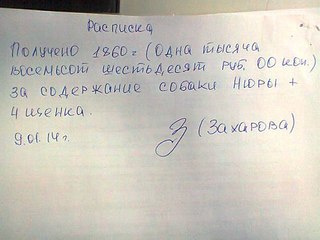 Расписка
Получено 1860= (одна тысяча
восемьсот шестьдесят руб. 00 коп.)
за содержание собаки Нюры +
4 щенка.
9.01.14 г.
(Захарова)